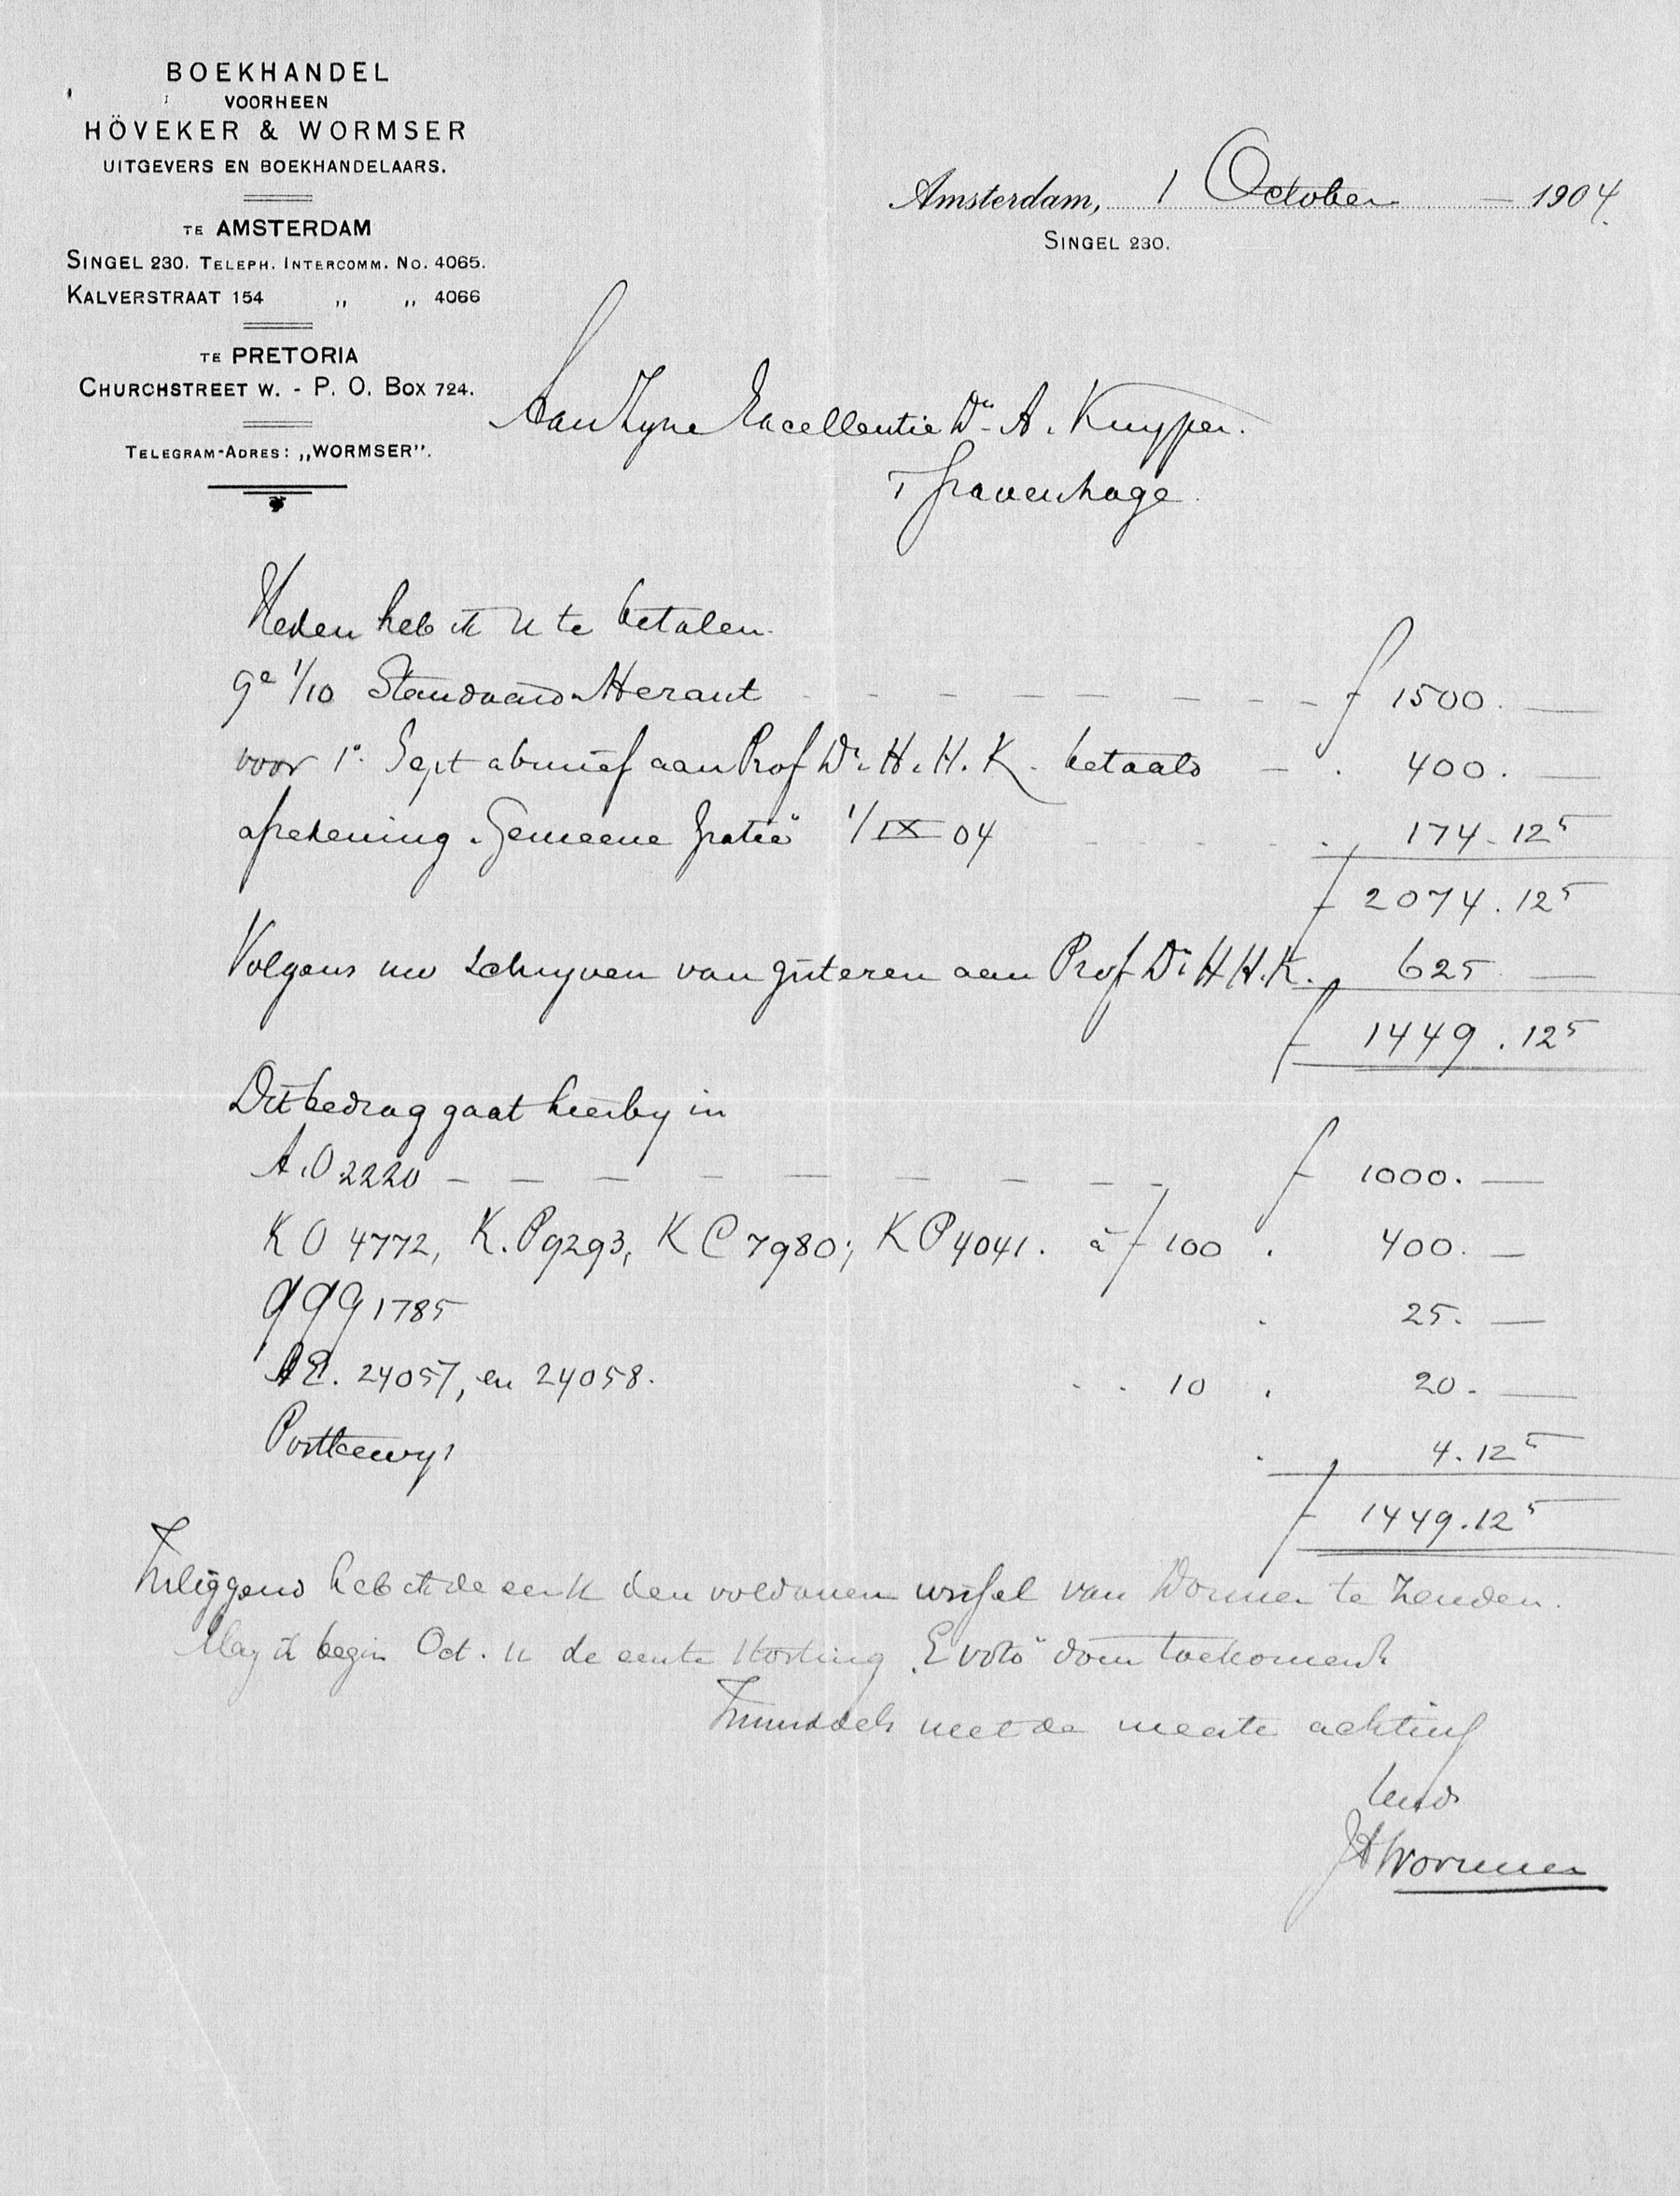 BOEKHANDEL
VOORHEEN
HÖVEKER & WORMSER
UITGEVERS EN BOEKHANDELAARS.
TE AMSTERDAM
SINGEL 230. TELEPH. INTERCOMM. NO. 4065.
KALVERSTRAAT 154 „ „ 4066
TE PRETORIA
CHURCHSTREET W. - P. O. BOX 724.
TELEGRAM-ADRES: „WORMSER”.
Amsterdam, 1 October 1904.
SINGEL 230.
Aan Zyne Excellentie Dr. A. Kuyper.
's Gravenhage.
Heden heb ik U te betalen.
9e 1/10 Standaard-Heraut f 1500. —
voor 1e Sept abusief aan Prof Dr. H. H. K. betaald 400. —
afrekening „Gemeene Gratie" 1/IX 04 174.12⁵
f 2074.12⁵
Volgens uw schrijven van gisteren aan Prof Dr H H. K. 625 —
f 1449.12⁵
Dit bedrag gaat hierby in
A.O 2220 — f 1000. —
K O 4772, K. P 9293, K C 7980; K P 4041. à f 100 . 400. —
1785 . 25. —
A E. 24057, en 24058. . . 10 . 20. —
Postbewys . 4.12⁵
f 1449.12⁵
Inliggend heb ik de eer U den voldanen wissel van Wormser te zenden.
Mag ik begin Oct. U de eerste storting „E voto" doen toekomen?
Inmiddels met de meeste achting
JAWormser